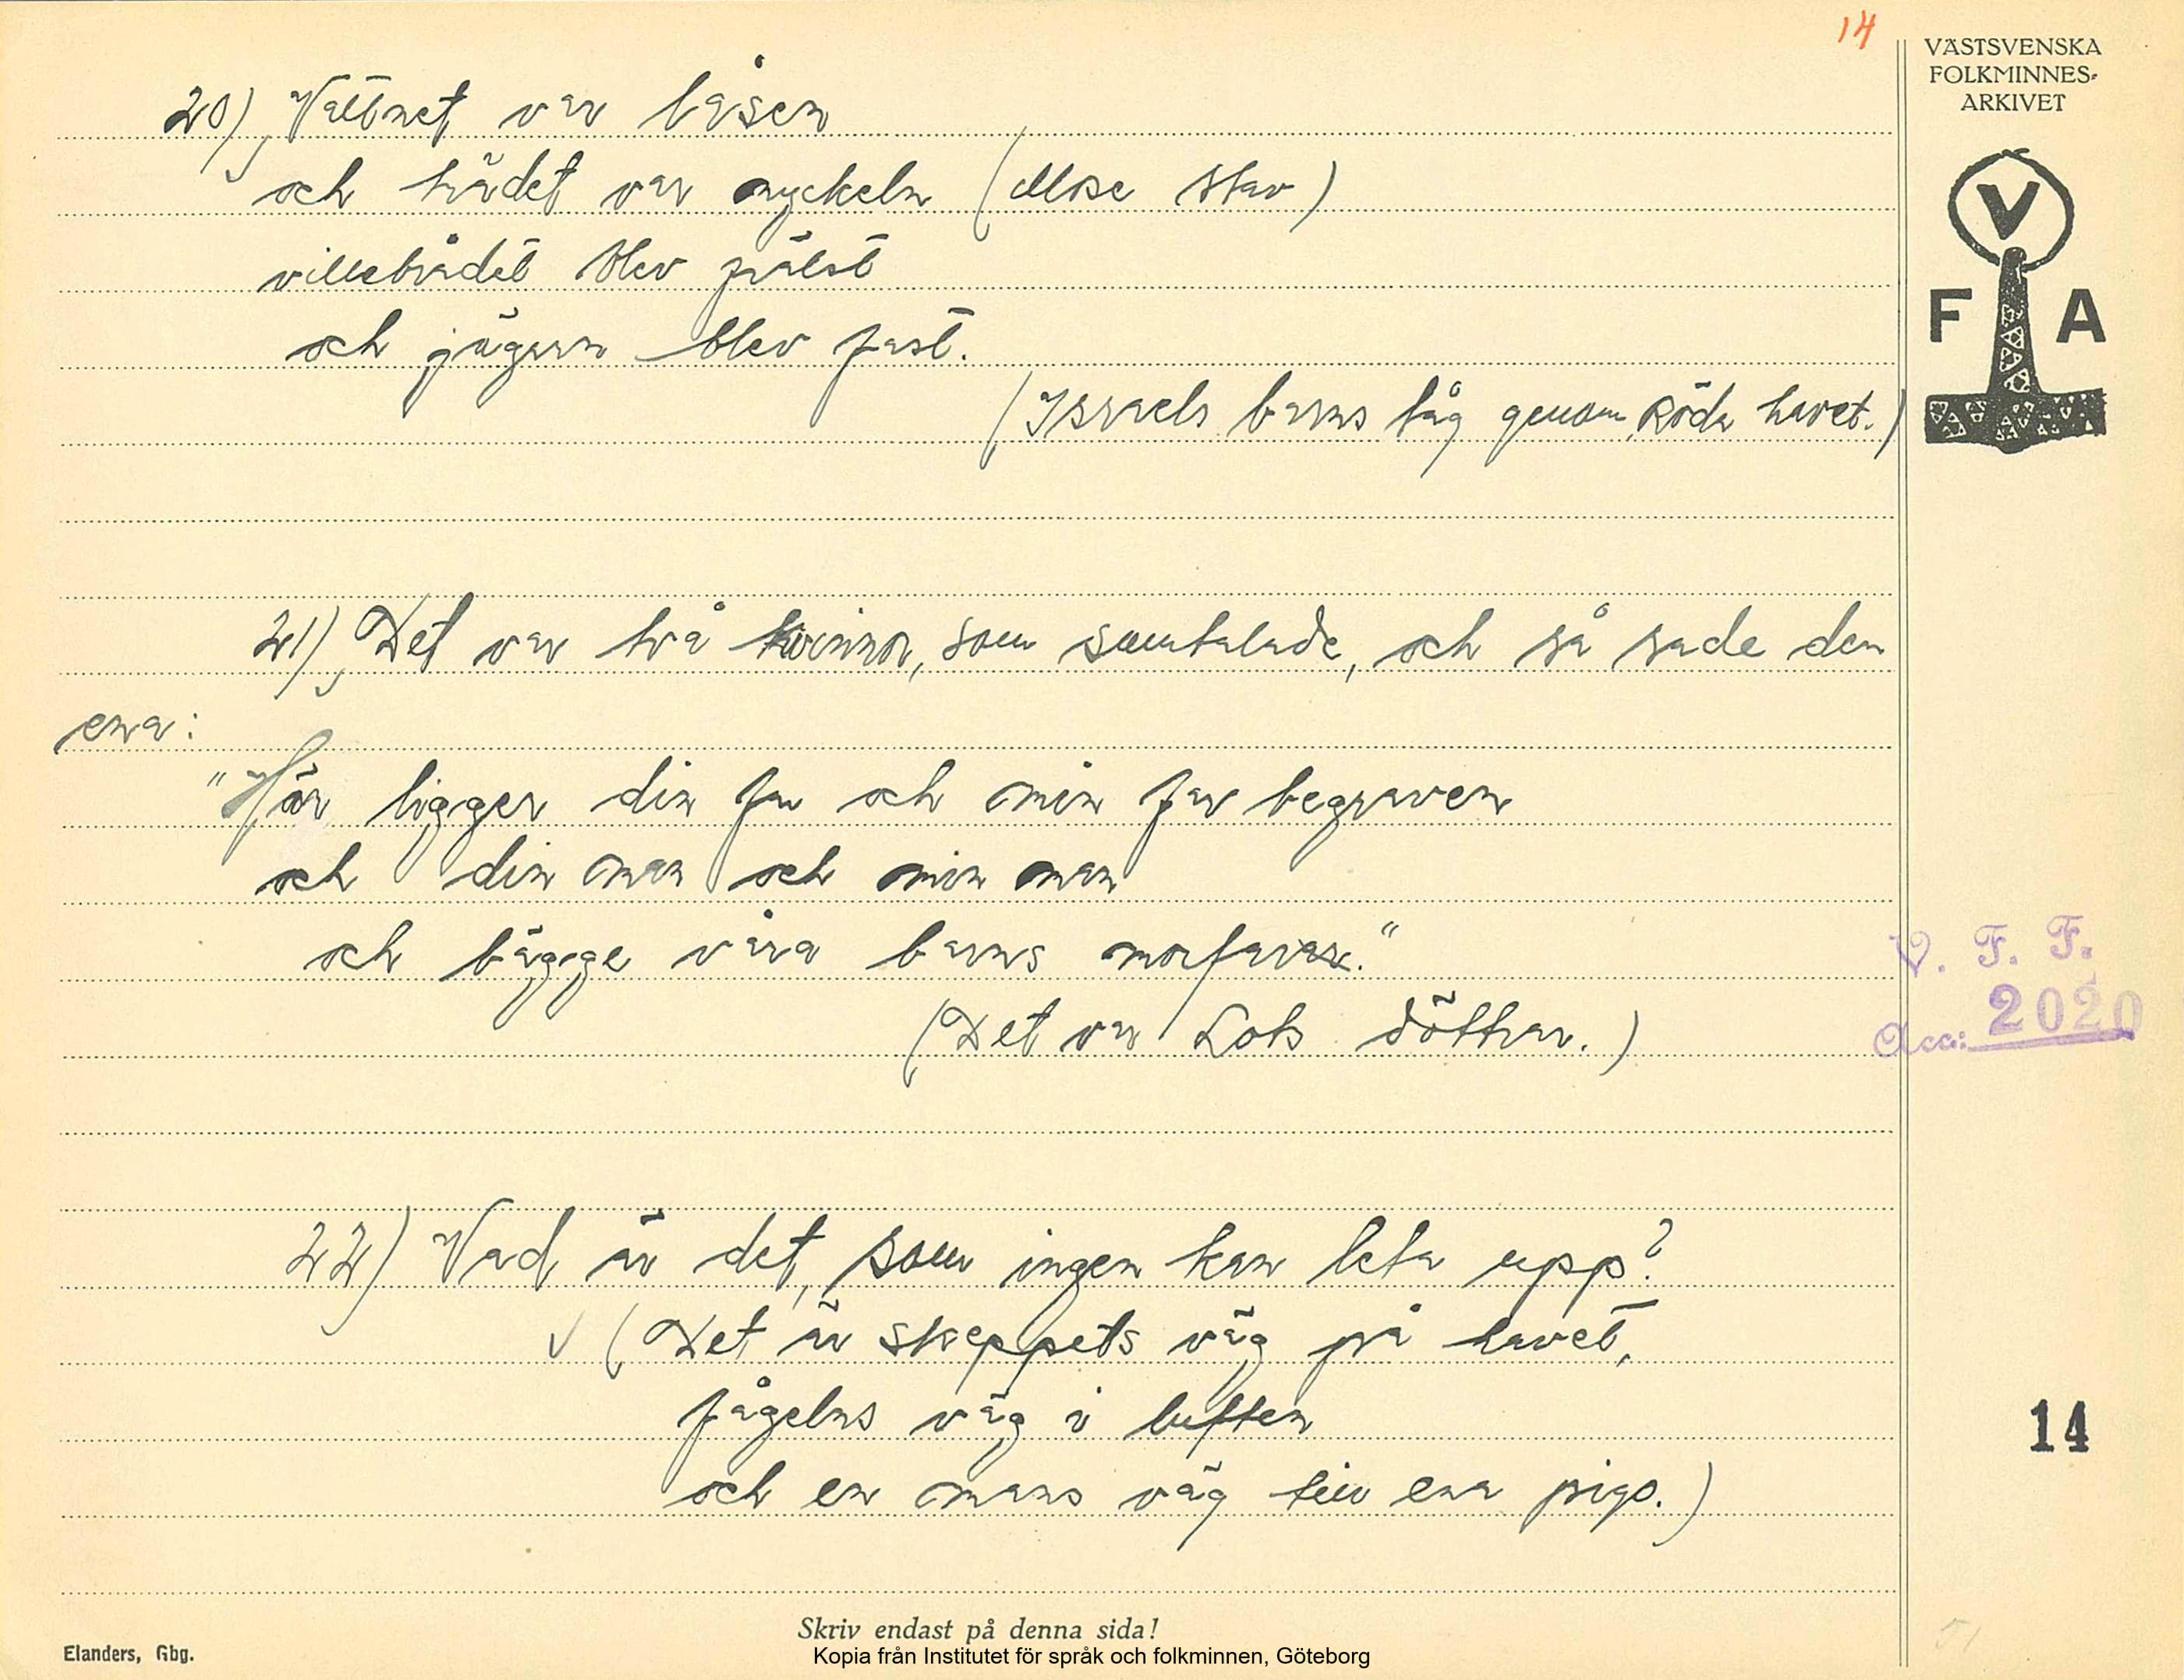 14
VÄSTSVENSKA
FOLKMINNES-
ARKIVET
V
F A
20) Vattnet var låsen
och trädet var nyckeln (Mose stav)
villebrådet blev frälst
och jägarn blev fast.
(Israels barns tåg genom Röda havet.)
21) Det var två kvinnor, som samtalade, och så sade den
ena:
"Här ligger din far och min far begraven
och din man och min man
och bägge våra barns morfar."
(Det var Lots döttrar.)
V. F. F.
Acc: 2020
22) Vad är det, som ingen kan leta upp?
(Det är skeppets väg på havet,
fågelns väg i luften
och en mans väg till ena piga.)
14
51
Skriv endast på denna sida!
Elanders, Gbg.
Kopia från Institutet för språk och folkminnen, Göteborg